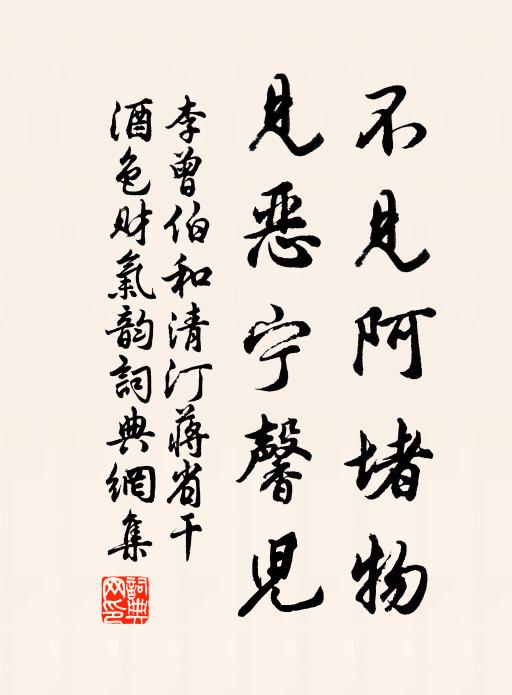 不見阿堵物
見惡宁馨児
李曾伯和清汀蔣省干
酒色財氣韵詞典網集
詞典網印